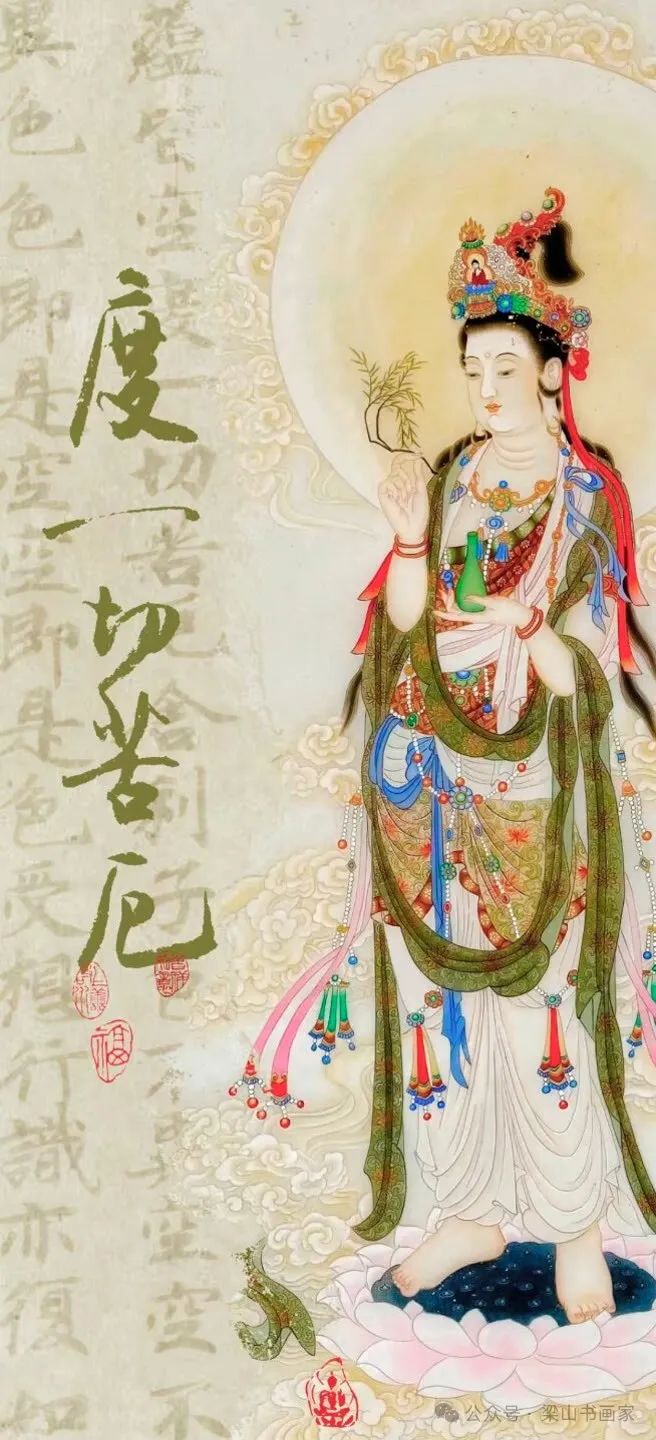 度一切苦厄
蘊皆空度一切苦厄舍利子色不異空空不
異色色即是空空即是色受想行識亦復如
福
公众号·梁山书画家